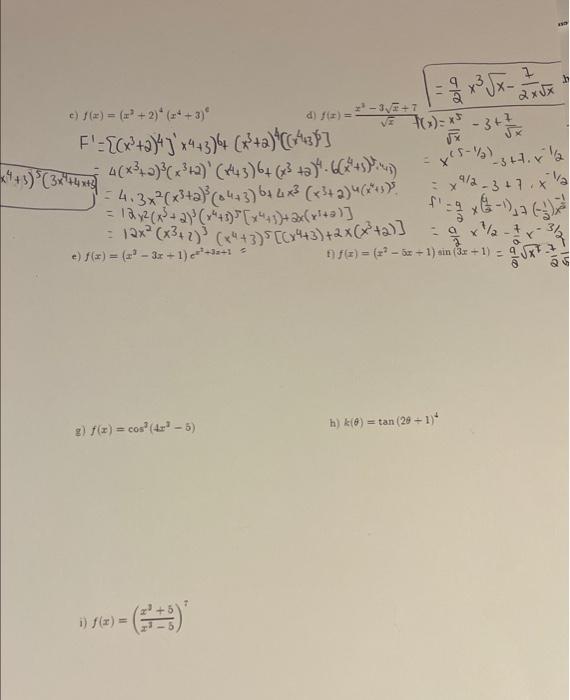 = 9/2 x³√x - 7/(2x√x)
c) f(x) = (x³ + 2)⁴ (x⁴ + 3)⁶
d) f(x) = (x⁵ - 3√x + 7)/√x
f(x) = x⁵/√x - 3 + 7/√x
F' = [(x³+2)⁴]' x⁴+3)⁶ + (x³+2)⁴[(x⁴+3)⁶]
= x^(5-1/2) - 3 + 7 · x^-1/2
= 4(x³+2)³(x³+2)' (x⁴+3)⁶ + (x³+2)⁴ · 6(x⁴+3)⁵
= x^9/2 - 3 + 7 · x^-1/2
x⁴+3)⁵(3x⁴+4x+9)
= 4 · 3x²(x³+2)³(x⁴+3)⁶ + 4x³ (x³+2)⁴(x⁴+3)⁵
f' = 9/2 x^(9/2 - 1) + 7 (-1/2)
= 12x²(x³+2)³(x⁴+3)⁵[x⁴+3)+2x(x³+2)]
= 9/2 x^7/2 - 7/2 x^-3/2
= 12x²(x³+2)³ (x⁴+3)⁵[(x⁴+3)+2x(x³+2)]
e) f(x) = (x³ - 3x + 1) e^(x²+3x+1) =
f) f(x) = (x² - 5x + 1) sin (3x + 1)
= 9/2 √x⁷ - 7/2
g) f(x) = cos³ (4x² - 5)
h) k(θ) = tan (2θ + 1)⁴
i) f(x) = ((x³ + 5)/(x³ - 5))⁷